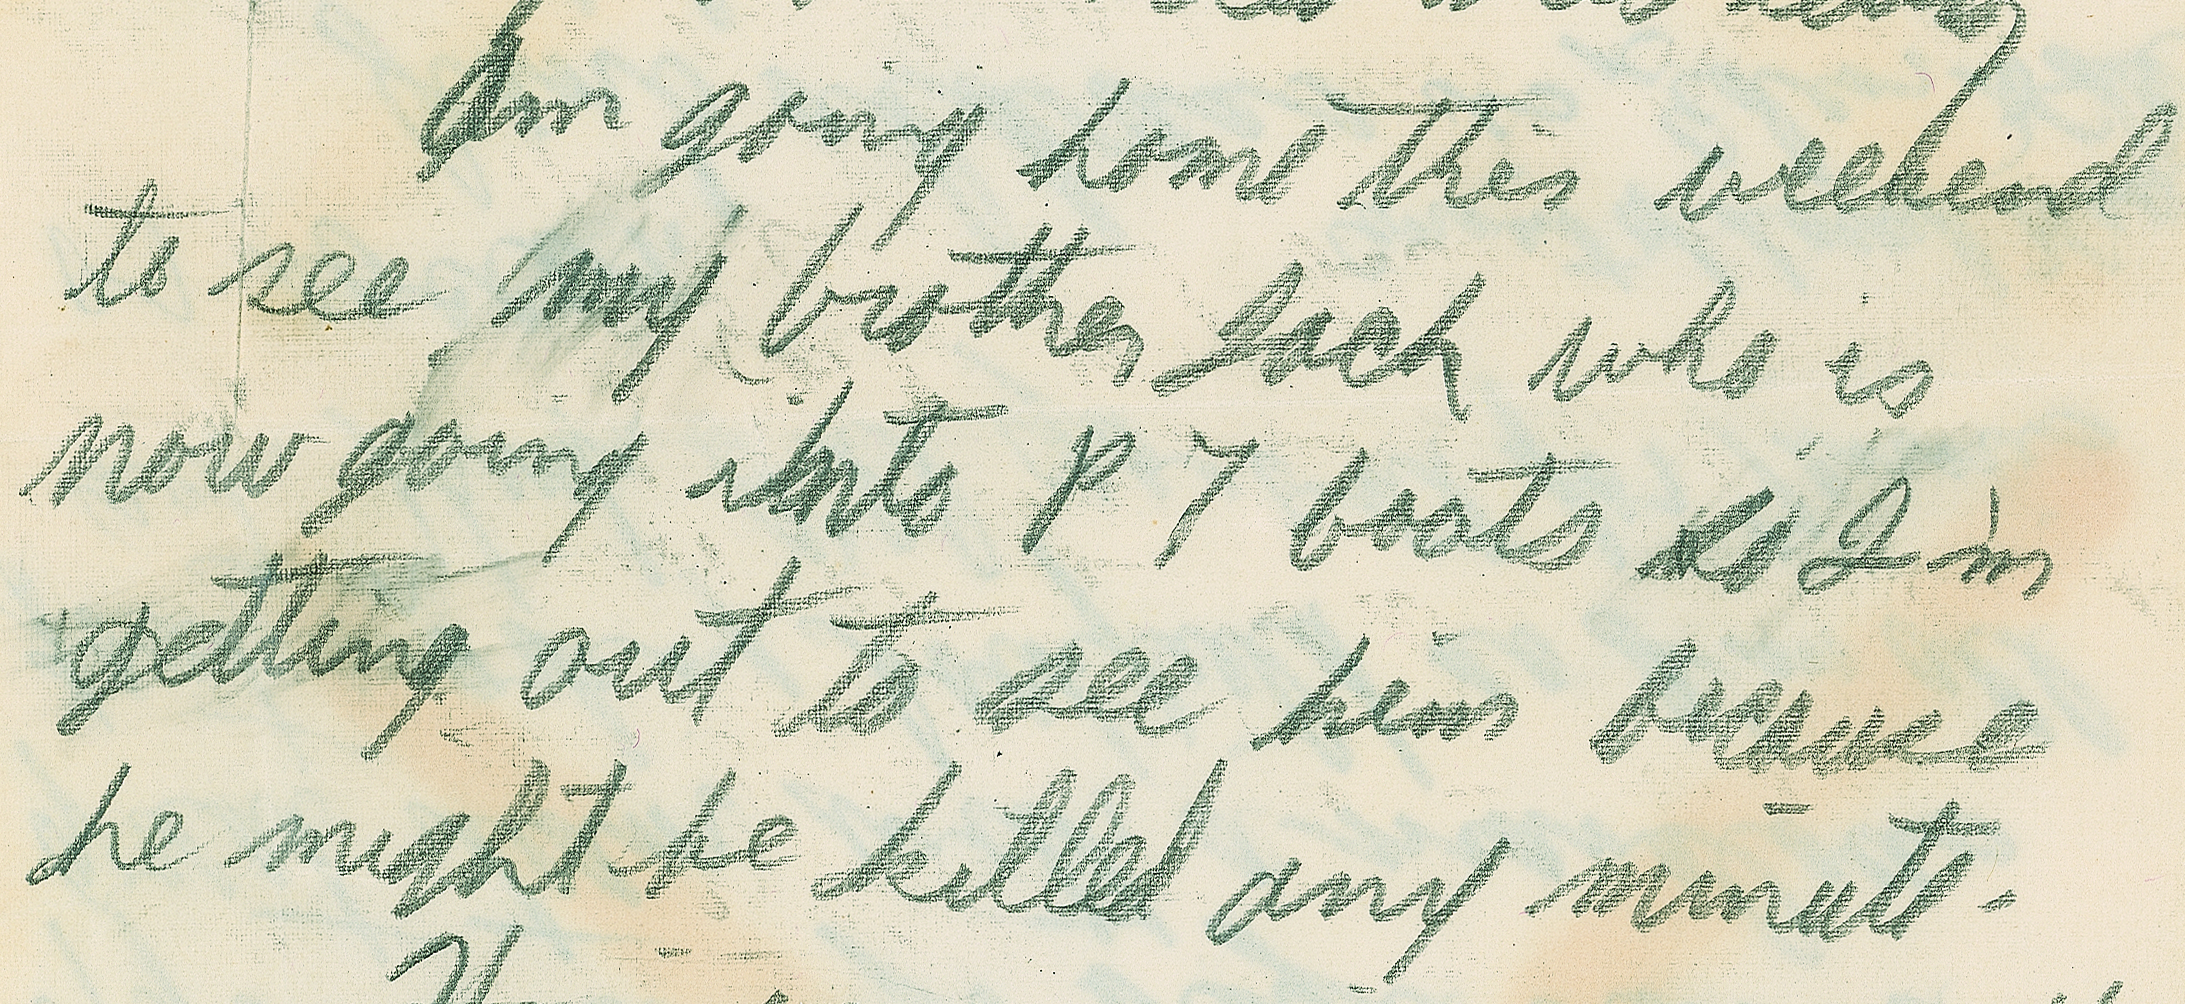 Am going home this weekend
to see my brother Jack who is
now going into P T boats so I'm
getting out to see him because
he might be killed any minute.